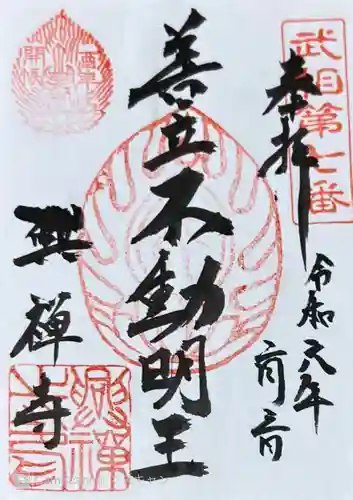 武相第七番
奉拝
令和六年
六月三日
善立不動明王
興禅寺
酉年
開帳
興禅
寺